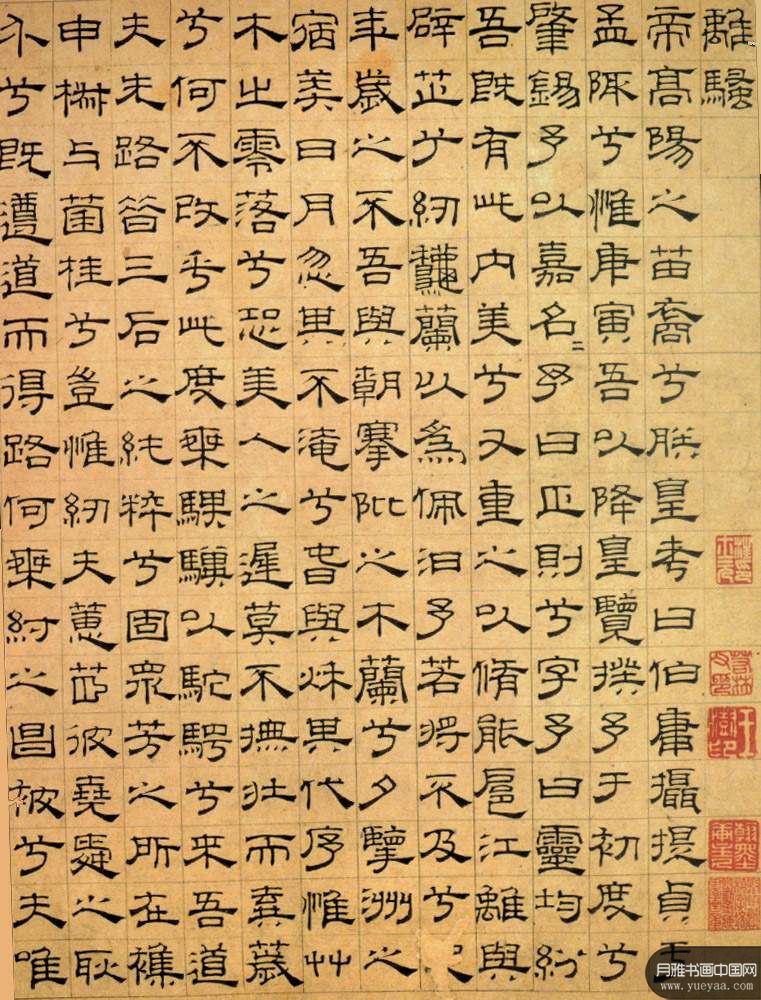 離騷
帝高陽之苗裔兮朕皇考曰伯庸攝提貞于
孟陬兮惟庚寅吾以降皇覽揆予于初度兮
肇錫予以嘉名二予曰正則兮字予曰靈均紛
吾既有此內美兮又重之以脩能扈江離與
辟芷兮紉龝蘭以為佩汩予若將不及兮恐
年歲之不吾與朝搴阰之木蘭兮夕擥洲之
宿莽日月忽其不淹兮春與秌其代序惟艸
木之零落兮恐美人之遲莫不撫壯而棄薉
兮何不改乎此度乘騏驥以駝騁兮來吾道
夫先路昔三后之純粹兮固眾芳之所在襍
申椒与菌桂兮豈惟紉夫蕙茝彼堯舜之耿
介兮既遵道而得路何桀紂之昌被兮夫唯
月雅书画中国网
www.yueyaa.com